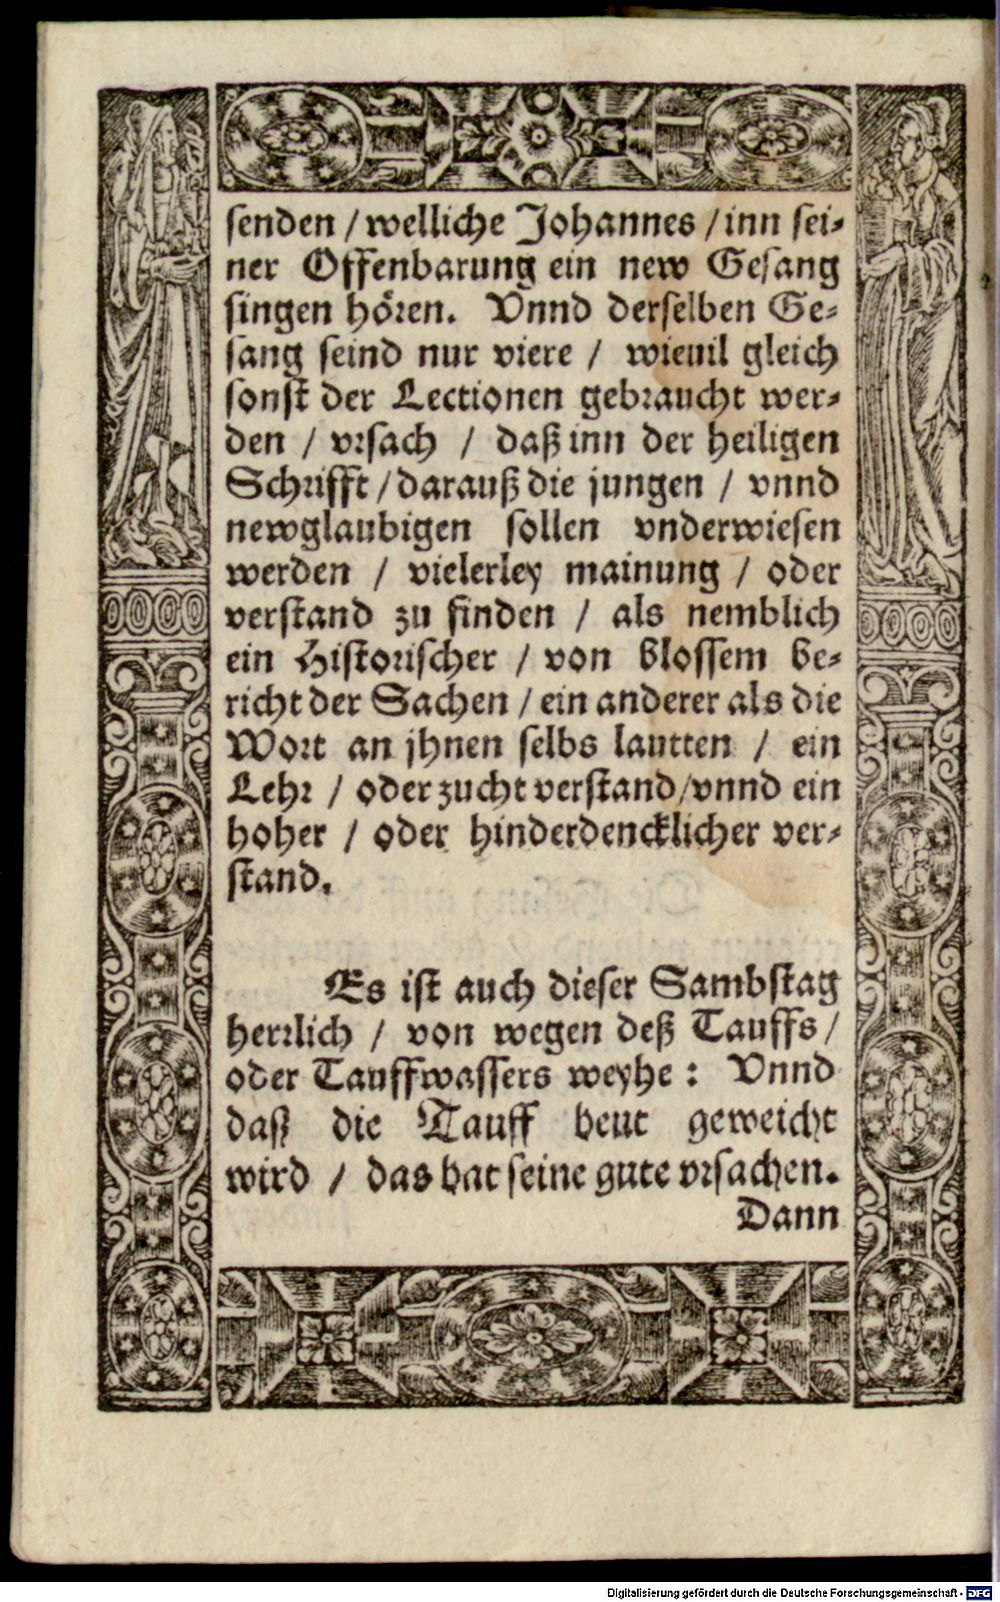 senden / welliche Johannes / inn sei-
ner Offenbarung ein new Gesang
singen hören. Vnnd derselben Ge-
sang seind nur viere / wieuil gleich
sonst der Lectionen gebraucht wer-
den / vrsach / daß inn der heiligen
Schrifft / darauß die jungen / vnnd
newglaubigen sollen vnderwiesen
werden / vielerley mainung / oder
verstand zu finden / als nemblich
ein Historischer / von blossem be-
richt der Sachen / ein anderer als die
Wort an jhnen selbs lautten / ein
Lehr / oder zucht verstand / vnnd ein
hoher / oder hinderdencklicher ver-
stand.
Es ist auch dieser Sambstag
herrlich / von wegen deß Tauffs /
oder Tauffwassers weyhe : Vnnd
daß die Tauff heut geweicht
wird / das hat seine gute vrsachen.
Dann
Digitalisierung gefördert durch die Deutsche Forschungsgemeinschaft - DFG